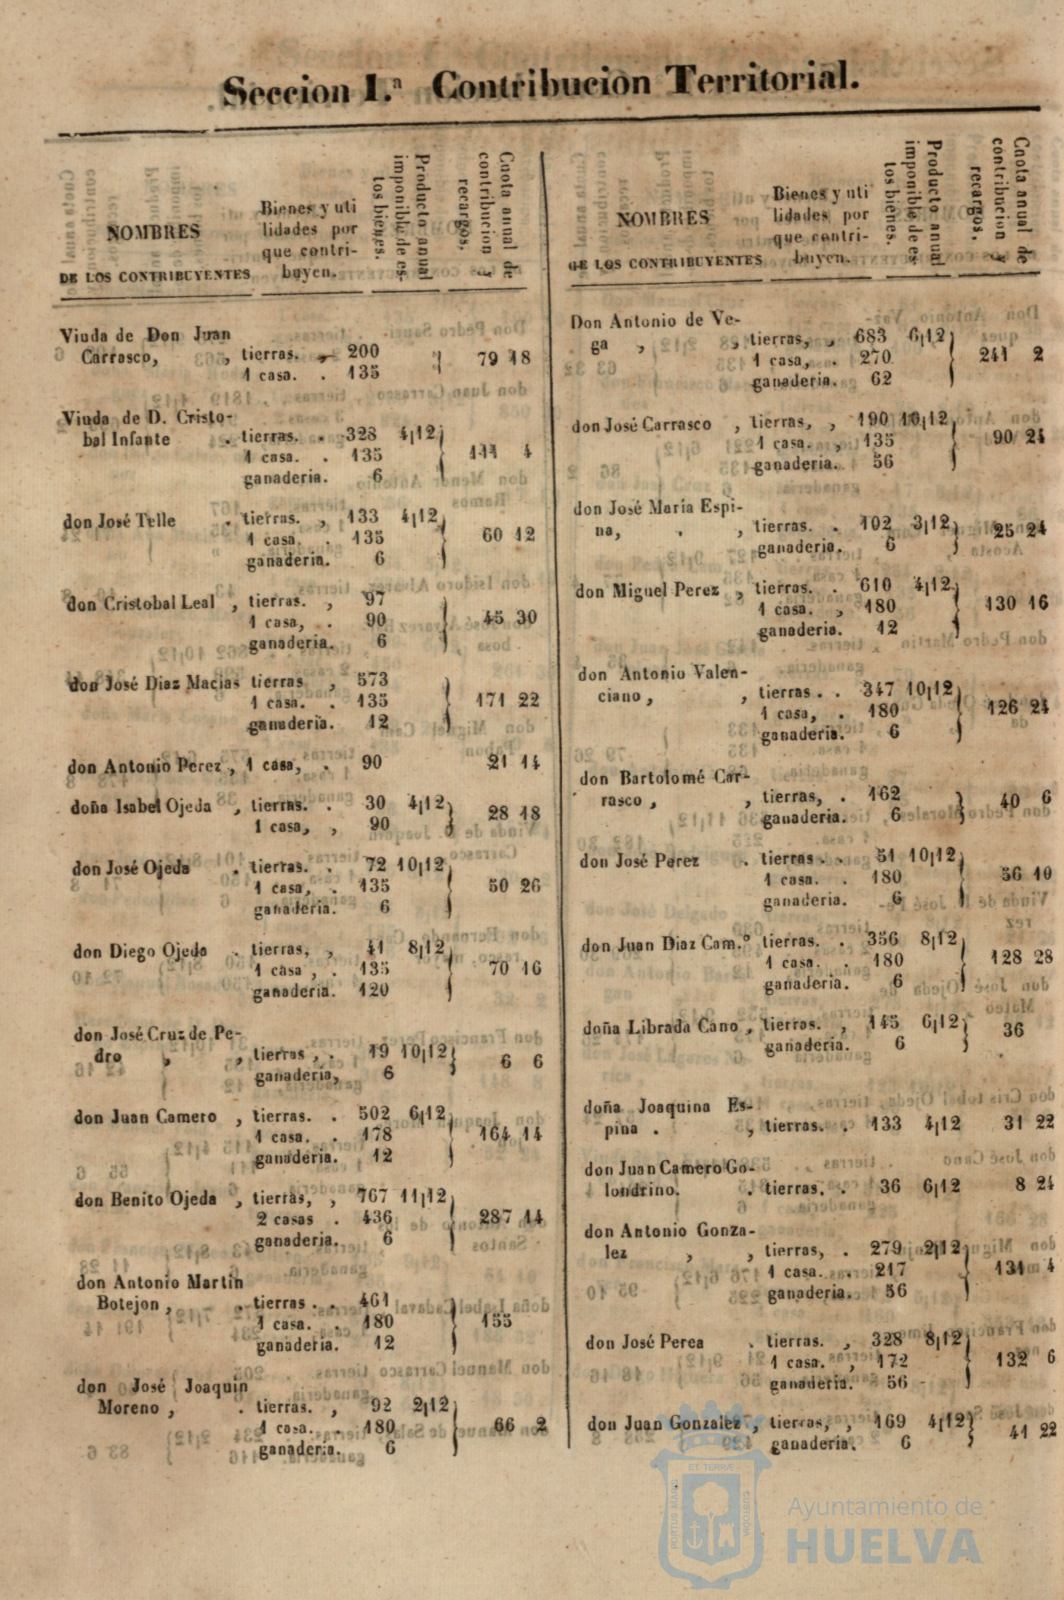 Seccion 1.ª Contribucion Territorial.
NOMBRES
DE LOS CONTRIBUYENTES
Bienes y uti
lidades por
que contri-
buyen.
Producto anual
imponible de es-
tos bienes.
Cuota anual de
contribucion y
recargos.
Viuda de Don Juan
Carrasco, , tierras. 200
1 casa. . 135 79 18
Viuda de D. Cristo-
bal Infante . tierras. . 328 4|12
1 casa. . 135 144 4
ganaderia. 6
don José Telle . tierras. , 133 4|12
1 casa. . 135 60 12
ganaderia. 6
don Cristobal Leal , tierras. , 97
1 casa, . 90 45 30
ganaderia. 6
don José Diaz Macias tierras , 573
1 casa. . 135 171 22
ganaderia. 12
don Antonio Perez , 1 casa, . 90 21 14
doña Isabel Ojeda , tierras. . 30 4|12
1 casa, , 90 28 18
don José Ojeda . tierras. . 72 10|12
1 casa, . 135 50 26
ganaderia. 6
don Diego Ojeda . tierras, , 41 8|12
1 casa , . 135 70 16
ganaderia. 120
don José Cruz de Pe-
dro , , tierras , . 19 10|12
ganaderia, 6 6 6
don Juan Camero , tierras. . 502 6|12
1 casa. . 178 164 14
ganaderia. 12
don Benito Ojeda , tierras, , 767 11|12
2 casas . 436 287 14
ganaderia. 6
don Antonio Martin
Botejon , . tierras . . 461
1 casa. . 180 155
ganaderia. 12
don José Joaquin
Moreno , . tierras. , 92 2|12
1 casa. . 180 66 2
ganaderia. 6
NOMBRES
DE LOS CONTRIBUYENTES
Bienes y uti
lidades por
que contri-
buyen.
Producto anual
imponible de es-
tos bienes.
Cuota anual de
contribucion y
recargos.
Don Antonio de Ve-
ga , , tierras, , 683 6|12
1 casa, . 270 241 2
ganaderia. 62
don José Carrasco , tierras, , 190 10|12
1 casa. , 135 90 24
ganaderia. 56
don José Maria Espi-
na, . , tierras. . 102 3|12
ganaderia. 6 25 24
don Miguel Perez , tierras. . 610 4|12
1 casa. , 180 130 16
ganaderia. 12
don Antonio Valen-
ciano , , tierras . . 347 10|12
1 casa, . 180 126 24
ganaderia. 6
don Bartolomé Car-
rasco , , tierras, . 162
ganaderia. 6 40 6
don José Perez . tierras . . 51 10|12
1 casa. . 180 56 10
ganaderia. 6
don Juan Diaz Cam.º tierras. . 356 8|12
1 casa. . 180 128 28
ganaderia. 6
doña Librada Cano , tierras. , 145 6|12
ganaderia. 6 36
doña Joaquina Es-
pina . , tierras. . 133 4|12 31 22
don Juan Camero Go-
londrino. . tierras. . 36 6|12 8 24
don Antonio Gonza-
lez , , tierras, . 279 2|12
1 casa. . 217 131 4
ganaderia. 56
don José Perea . tierras. , 328 8|12
1 casa. , 172 132 6
ganaderia. 56
don Juan Gonzalez , tierras, , 169 4|12
ganaderia. 6 41 22
ET TERRÆ
PORTUS MARIS
CUSTODIA
Ayuntamiento de
HUELVA